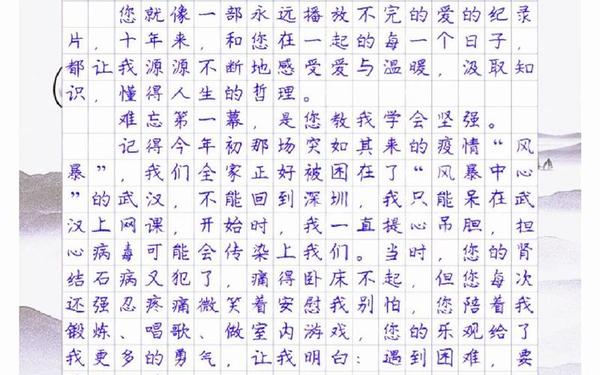 您就像一部永远播放不完的爱的纪录
片，十年来，和您在一起的每一个日子，
都让我源源不断地感受爱与温暖，汲取知
识，懂得人生的哲理。
难忘第一幕，是您教我学会坚强。
记得今年初那场突如其来的疫情“风
暴”，我们全家正好被困在了“风暴中心
”的武汉，不能回到深圳，我只能呆在武
汉上网课，开始时，我一直提心吊胆，担
心病毒可能会传染上我们。当时，您的肾
结石病又犯了，痛得卧床不起，但您每次
还强忍疼痛微笑着安慰我别怕，您陪着我
鍛炼、唱歌、做室内游戏，您的乐观给了
我更多的勇气，让我明白：遇到困难，要